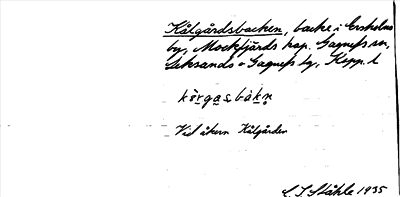 Kålgårdsbacken, backe i Ersholns
by, Mockfjärds kap. Gagnefs sn,
Leksands o Gagnefs tg, Kopp. l
kö̀rgasbàkn̥
Vid åkern Kålgården
C. I. Ståhle 1935